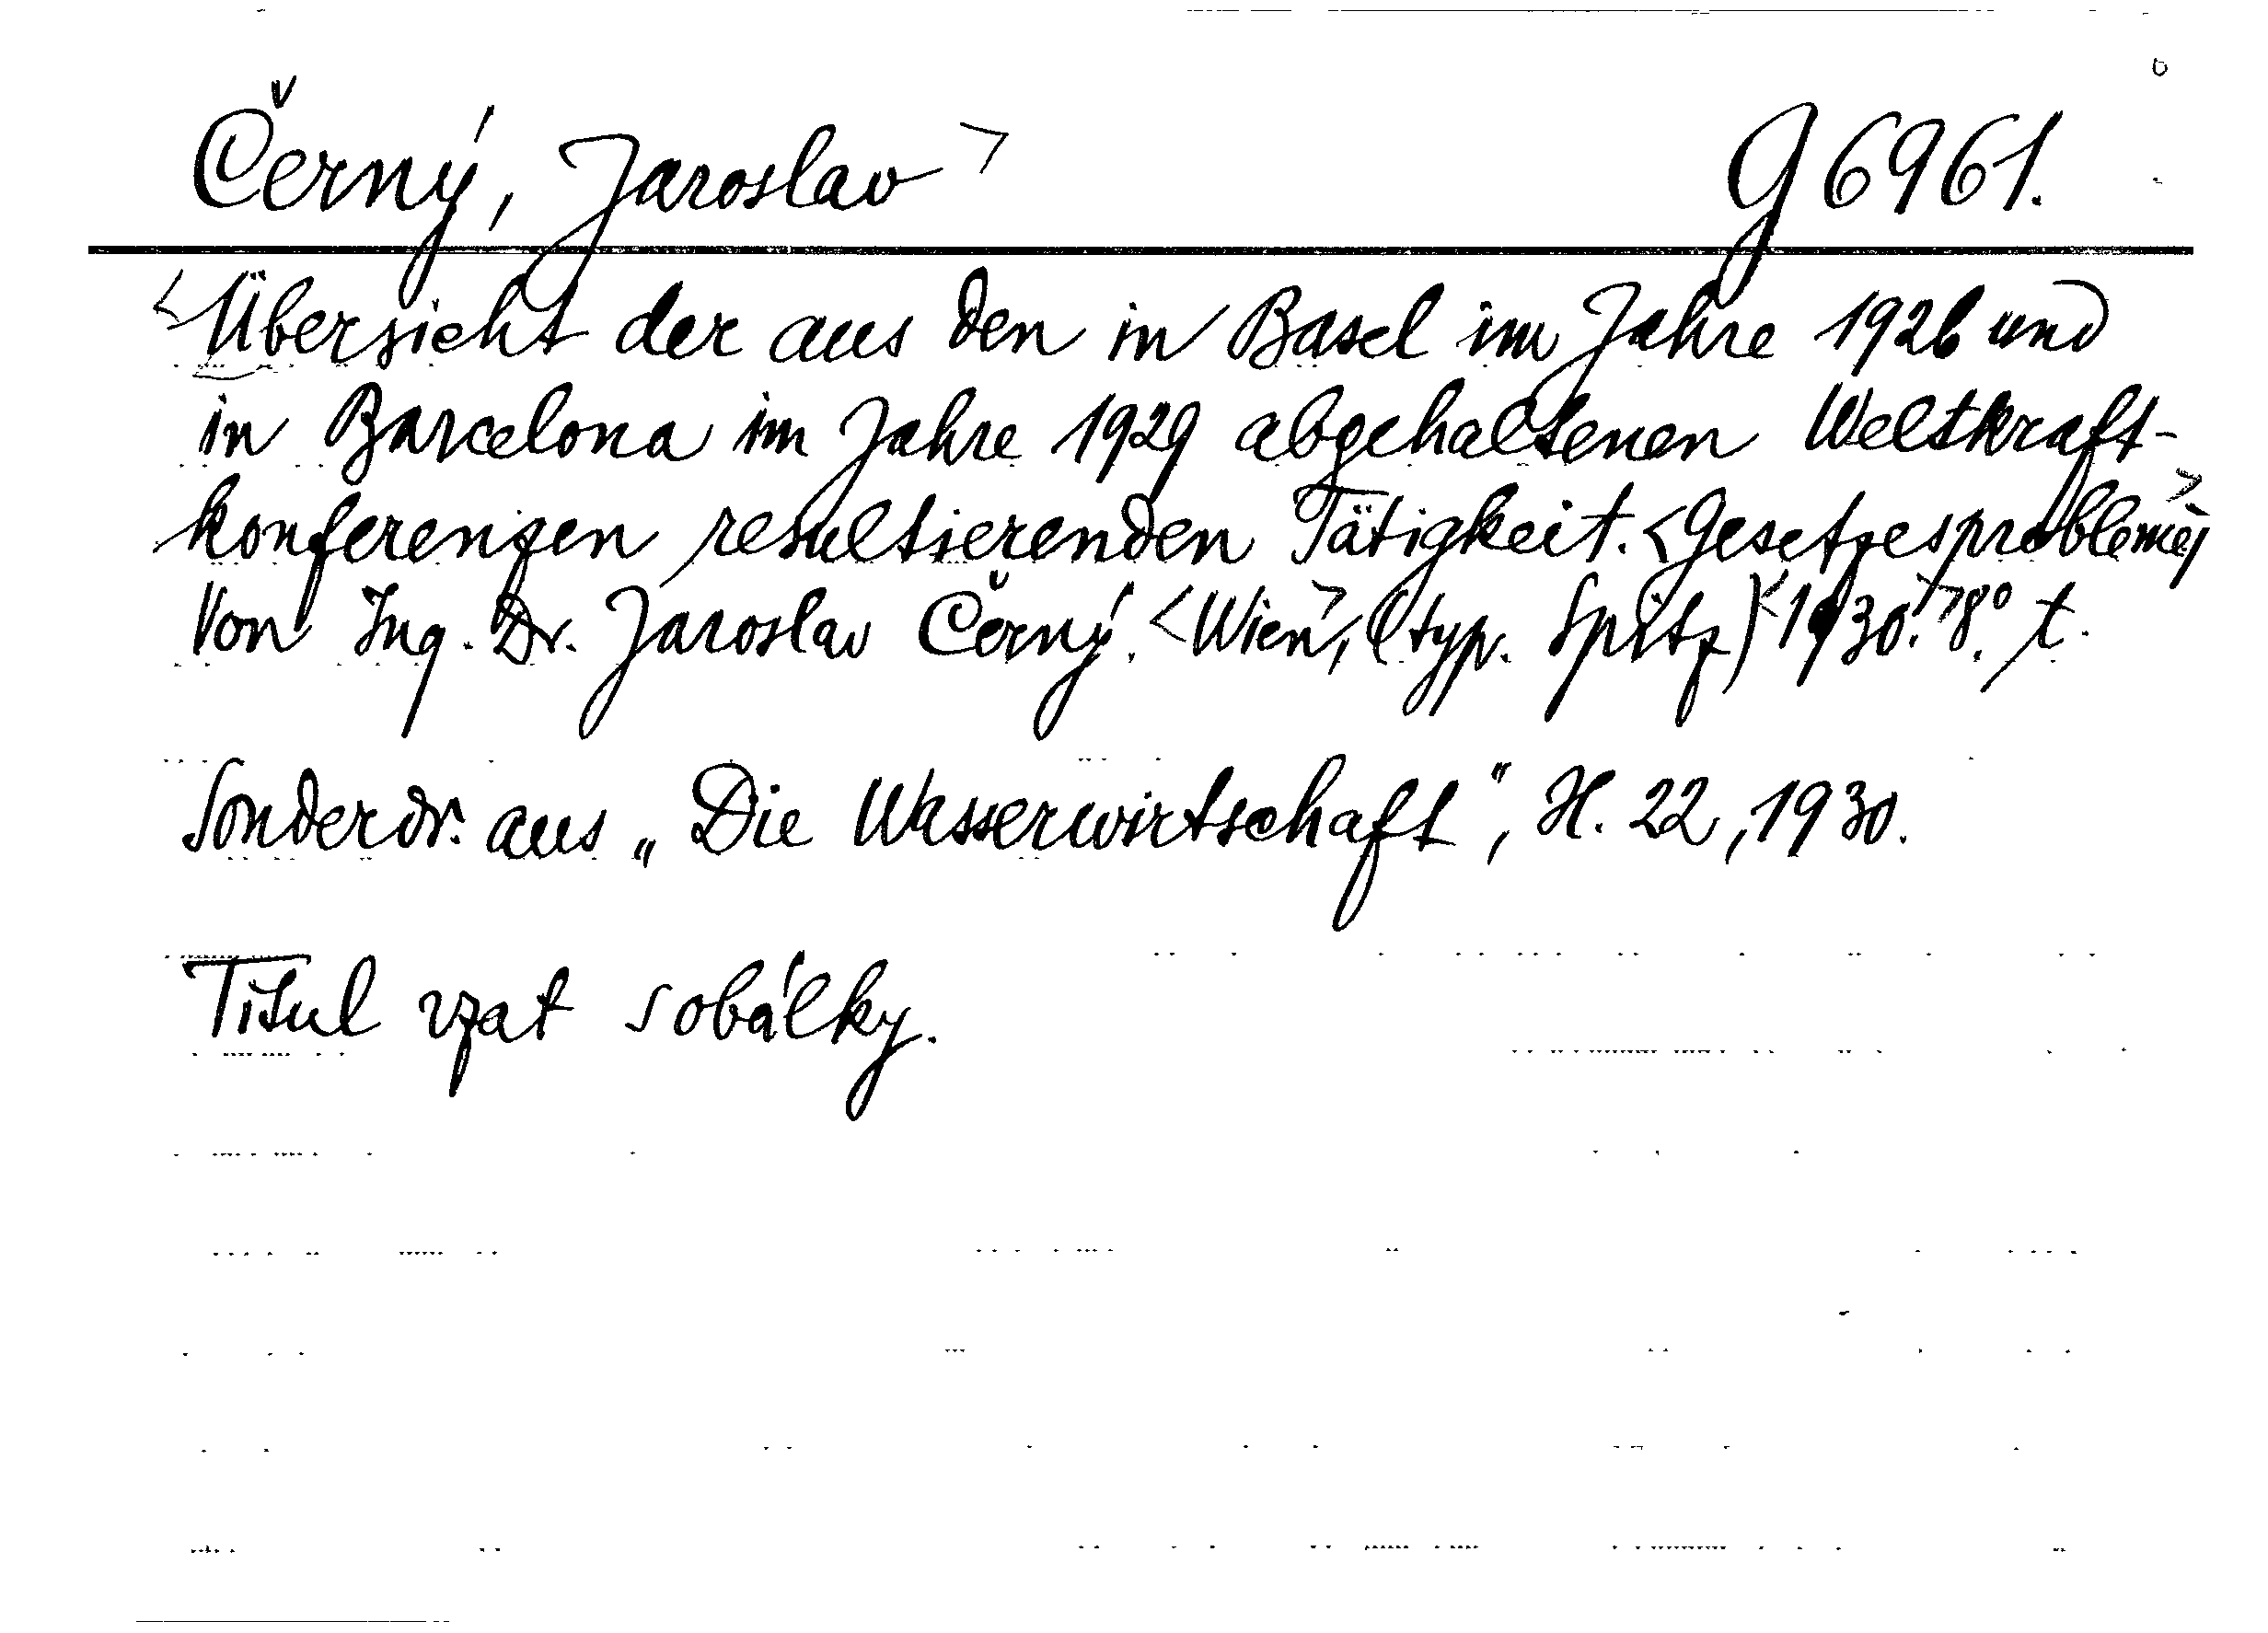 Černý, Jaroslav> G 6961.
<Übersicht der aus den in Basel im Jahre 1926 und
in Barcelona im Jahre 1929 abgehaltenen Weltkraft-
konferenzen resultierenden Tätigkeit. <Gesetzesprobleme>
Von Ing. Dr. Jaroslav Černý. <Wien>, (typ. Spitz) <1930.> 8°. t.
Sonderdr. aus „Die Wasserwirtschaft", H. 22, 1930.
Titul vzat s obálky.